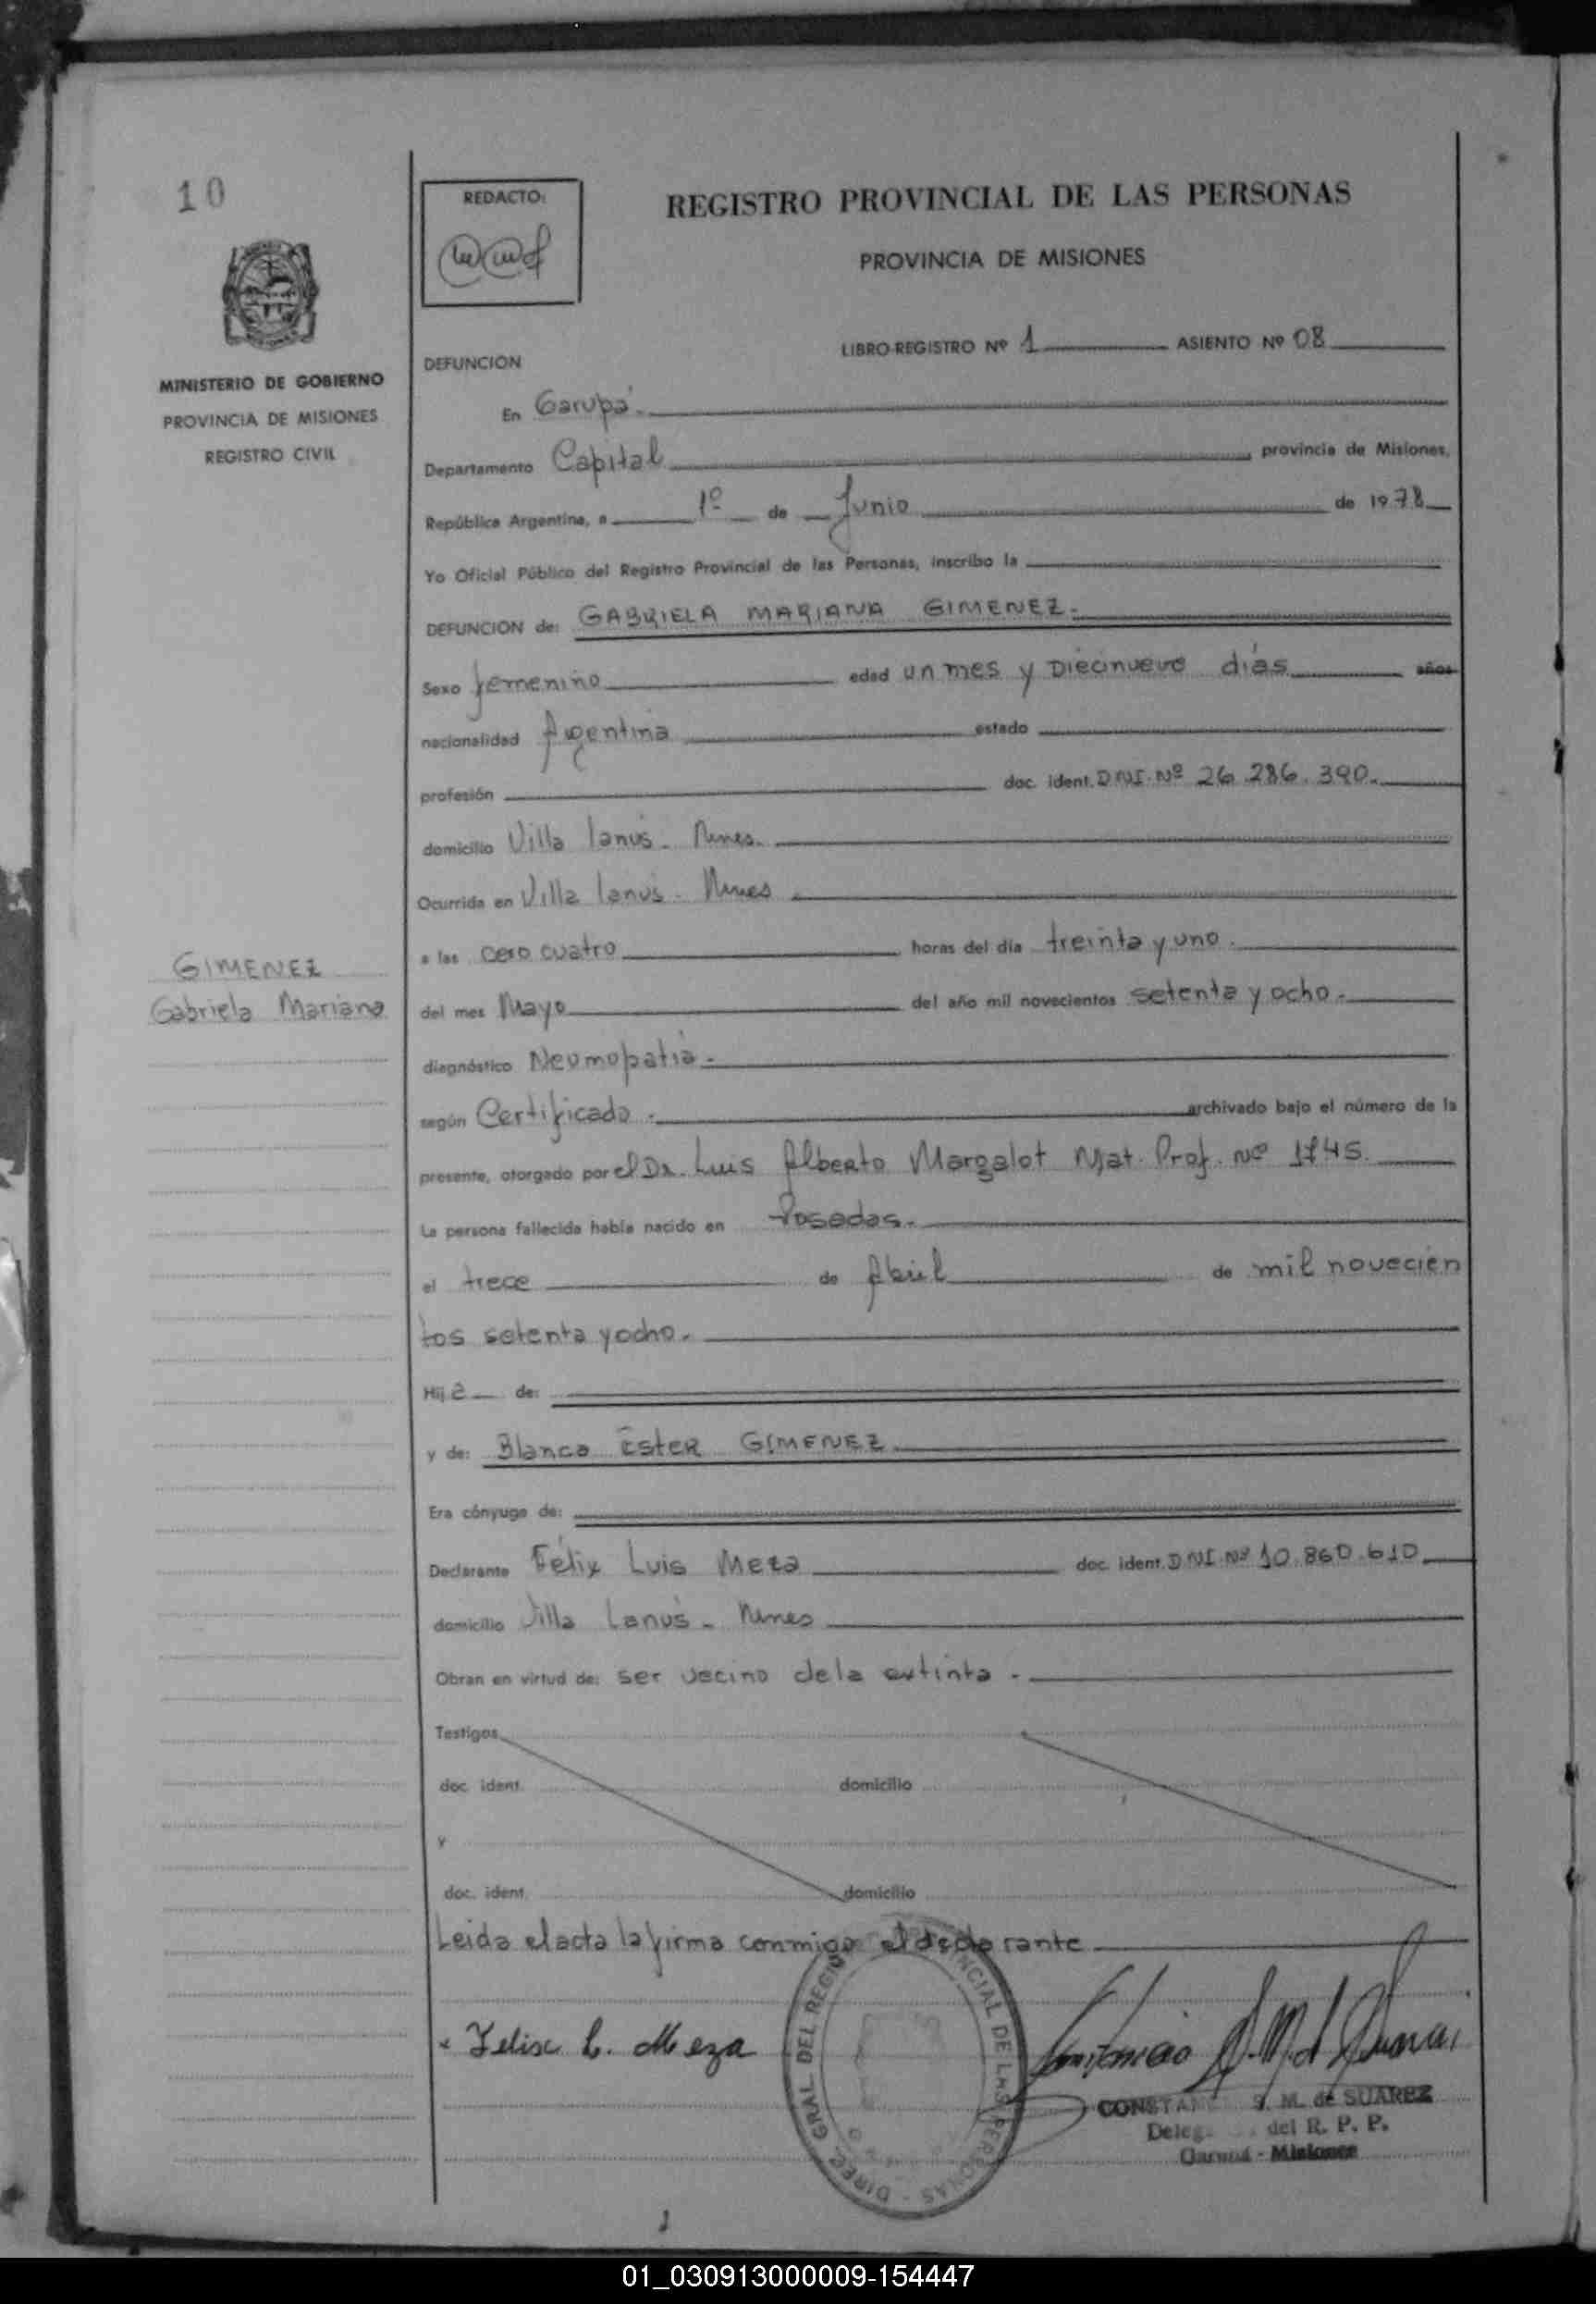 10
REDACTO:
REGISTRO PROVINCIAL DE LAS PERSONAS
PROVINCIA DE MISIONES
MINISTERIO DE GOBIERNO
PROVINCIA DE MISIONES
REGISTRO CIVIL
LIBRO-REGISTRO Nº 1 ASIENTO Nº 08
DEFUNCION
En Garupá.
Departamento Capital provincia de Misiones,
República Argentina, a 1º de Junio de 1978
Yo Oficial Público del Registro Provincial de las Personas, inscribo la
DEFUNCION de: GABRIELA MARIANA GIMENEZ.
Sexo femenino edad un mes y Diecinueve días años
nacionalidad Argentina estado
profesión doc. ident. D.N.I. Nº 26.286.390.
domicilio Villa lanús - Mnes.
Ocurrida en Villa lanús - Mnes
a las cero cuatro horas del día treinta y uno.
del mes Mayo del año mil novecientos setenta y ocho.
diagnóstico Neumopatía.
según Certificado. archivado bajo el número de la
presente, otorgado por el Dr. Luis Alberto Margalot Mat. Prof. Nº 1745.
La persona fallecida había nacido en Posadas.
el trece de Abril de mil novecien
tos setenta y ocho.
Hij a de:
y de: Blanca Ester GIMENEZ
Era cónyuge de:
Declarante Félix Luis Meza doc. ident. D.N.I. Nº 10.860.610
domicilio Villa Lanús - Mnes
Obran en virtud de: ser vecino de la extinta.
Testigos
doc. ident. domicilio
y
doc. ident. domicilio
Leida el acta la firma conmigo el declarante
GIMENEZ
Gabriela Mariana
Felix L. Meza
DIREC. GRAL. DEL REGISTRO PROVINCIAL DE LAS PERSONAS -
S. M. de SUAREZ
del R. P. P.
Garupá - Misiones
01_030913000009-154447